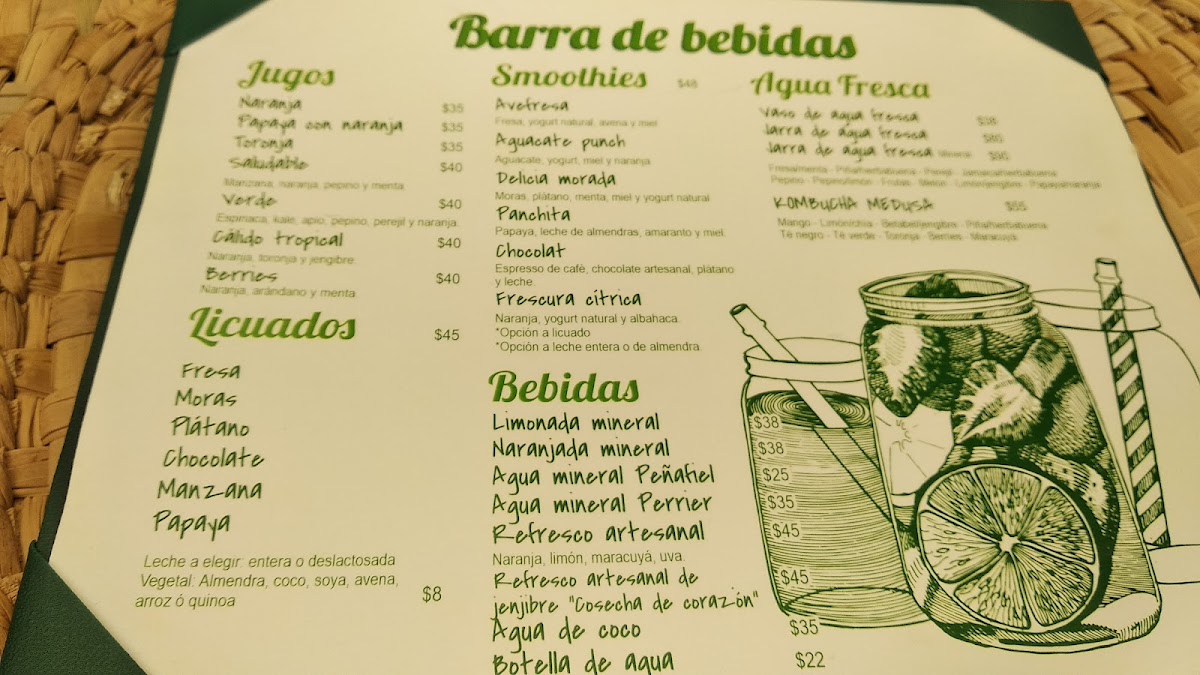 Barra de bebidas
Jugos
Naranja $35
Papaya con naranja $35
Toronja $35
Saludable $40
Manzana, naranja, pepino y menta
Verde $40
Espinaca, kale, apio, pepino, perejil y naranja.
Cálido tropical $40
Naranja, toronja y jengibre.
Berries $40
Naranja, arándano y menta
Licuados $45
Fresa
Moras
Plátano
Chocolate
Manzana
Papaya
Leche a elegir: entera o deslactosada
Vegetal: Almendra, coco, soya, avena,
arroz ó quinoa $8
Smoothies $48
Avefresa
Fresa, yogurt natural, avena y miel
Aguacate punch
Aguacate, yogurt, miel y naranja
Delicia morada
Moras, plátano, menta, miel y yogurt natural
Panchita
Papaya, leche de almendras, amaranto y miel.
Chocolat
Espresso de café, chocolate artesanal, plátano
y leche.
Frescura cítrica
Naranja, yogurt natural y albahaca.
*Opción a licuado
*Opción a leche entera o de almendra.
Bebidas
Limonada mineral $38
Naranjada mineral $38
Agua mineral Peñafiel $25
Agua mineral Perrier $35
Refresco artesanal $45
Naranja, limón, maracuyá, uva.
Refresco artesanal de $45
jenjibre "Cosecha de corazón"
Agua de coco $35
Botella de agua $22
Agua Fresca
Vaso de agua fresca $38
Jarra de agua fresca $80
Jarra de agua fresca Mineral $90
Fresa/menta - Piña/hierbabuena - Perejil - Jamaica/hierbabuena
Pepino - Pepino/limón - Frutas - Melón - Limón/jengibre - Papaya/naranja
KOMBUCHA MEDUSA $55
Mango - Limón/chía - Betabel/jengibre - Piña/hierbabuena
Té negro - Té verde - Toronja - Berries - Maracuyá.